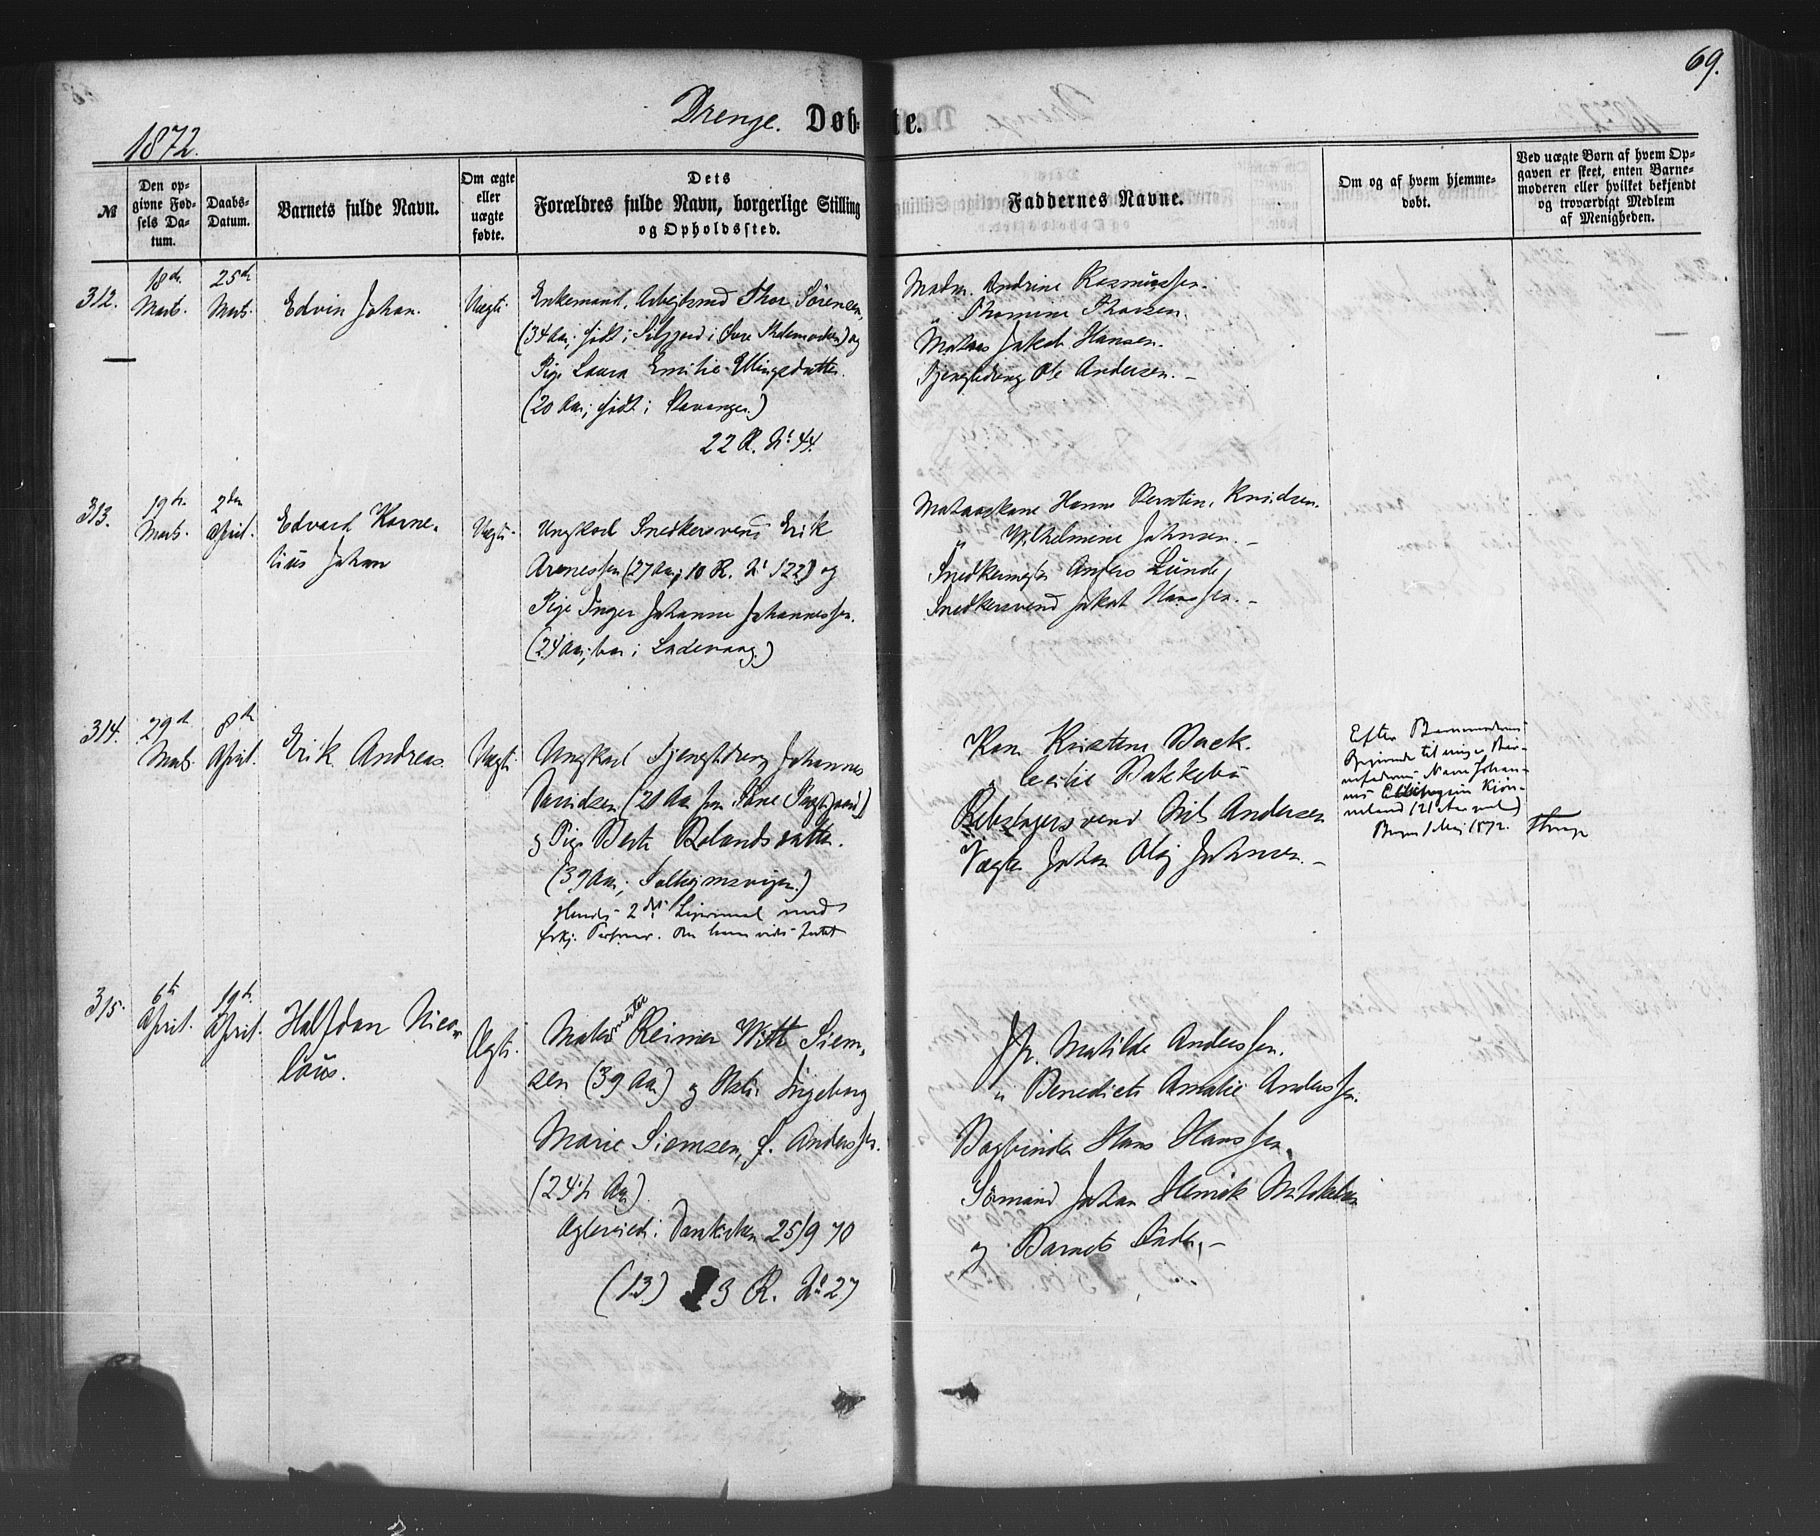 69.
1872.
Drenge. Døbte.
№
Den op-
givne Fød-
sels Da-
tum.
Daabs-
Datum.
Barnets fulde Navn.
Om ægte
eller
uægte
fødte.
Dets
Forældres fulde Navn, borgerlige Stilling
og Opholdssted.
Faddernes Navne.
Om og af hvem hjemme-
døbt.
Ved uægte Børn af hvem Op-
gaven er skeet, enten Barne-
moderen eller hvilket bekjendt
og troværdigt Medlem
af Menigheden.
312.
18de
Marts.
25de
Marts.
Edvin Johan.
Uægte
Enkemand, Arbeidsmd Thor Sörensen,
(34 Aar, født i Silgjord i Øvre Thelemarken) og
Pige Laura Emilie Ellingsdatter.
(20 Aar; født i Stavanger.)
22 R. № 44.
Madm. Andrine Rasmussen.
" Thomine Thorsen.
Matros Jakob Hansen.
Tjenestdreng Ole Andersen. –
313.
19de
Marts.
2den
April.
Edvard Korne-
lius Johan
Uægte
Ungkarl Snedkersvend Erik
Arnessen (27 Aar; 10 R. № 122) og
Pige Inger Johanne Johannessen.
(24 Aar, bor i Ladevaag.)
Hanne Knudsen.
" Wilhelmine Johnsen. –
Snedkermester Anders Lunde
Snedkersvend Jakob Hanssen. –
314.
29de
Marts.
8de
April.
Erik Andreas
Uægte
Ungkarl Tjenestdreng Johannes
Davidsen (20 Aar
og Pige Berte Rolandsdatter.
(39 Aar; Solheimsvigen.)
Hendes 2det Leiermaal med
forskj. Personer.
Kone Kristine Back.
" Cecilie
Rebslagersvend Nils Andersen
Vægter Johan Johnsen. –
Efter Barnemoderens
Begjærende
Navn Johan-
nes
(21 Aar
Bergen 1 Mai 1872.
315.
6te
April.
19de
April.
Halfdan Nico-
laus.
Ægte
Malermester Reimer Witt Siem-
sen (39 Aar) og Hustru Ingeborg
Marie Siemsen, f. Anderssen.
(24½ Aar)
Ægteviede i Domkirken 25/9 70
(13) 3 R. № 27
Jfr. Matilde Anderssen.
" Benedicte Amalie Anderssen.
Bogbinder Hans Hanssen.
Sömand Johan Henrik
og Barnets Fader. –